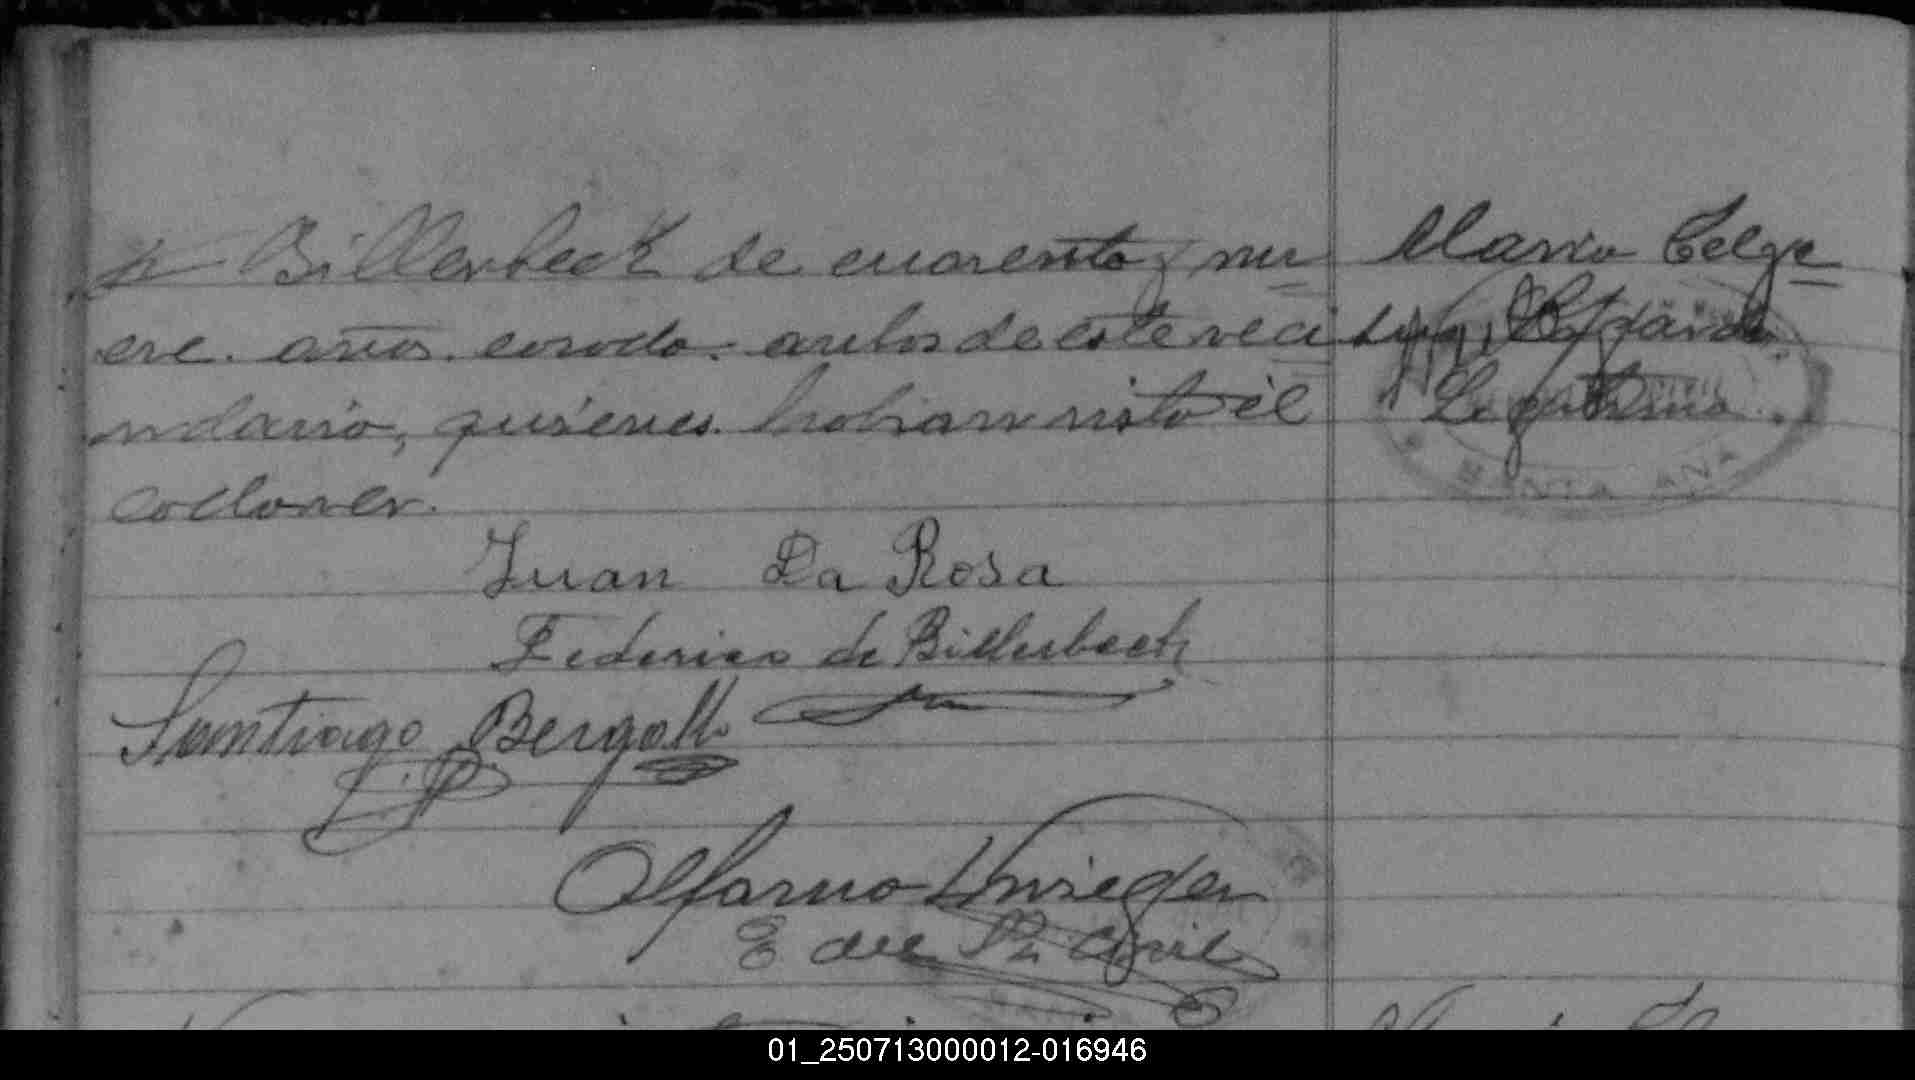 Billerbeck de cuarenta y nu
eve años casado ambos de este veci
ndario, quienes habian visto el
cadaver.
Juan La Rosa
Federico de Billerbeck
Santiago Bergallo
E del R. Civil
Maria Celge
Legitima
SANTA ANA
01_250713000012-016946